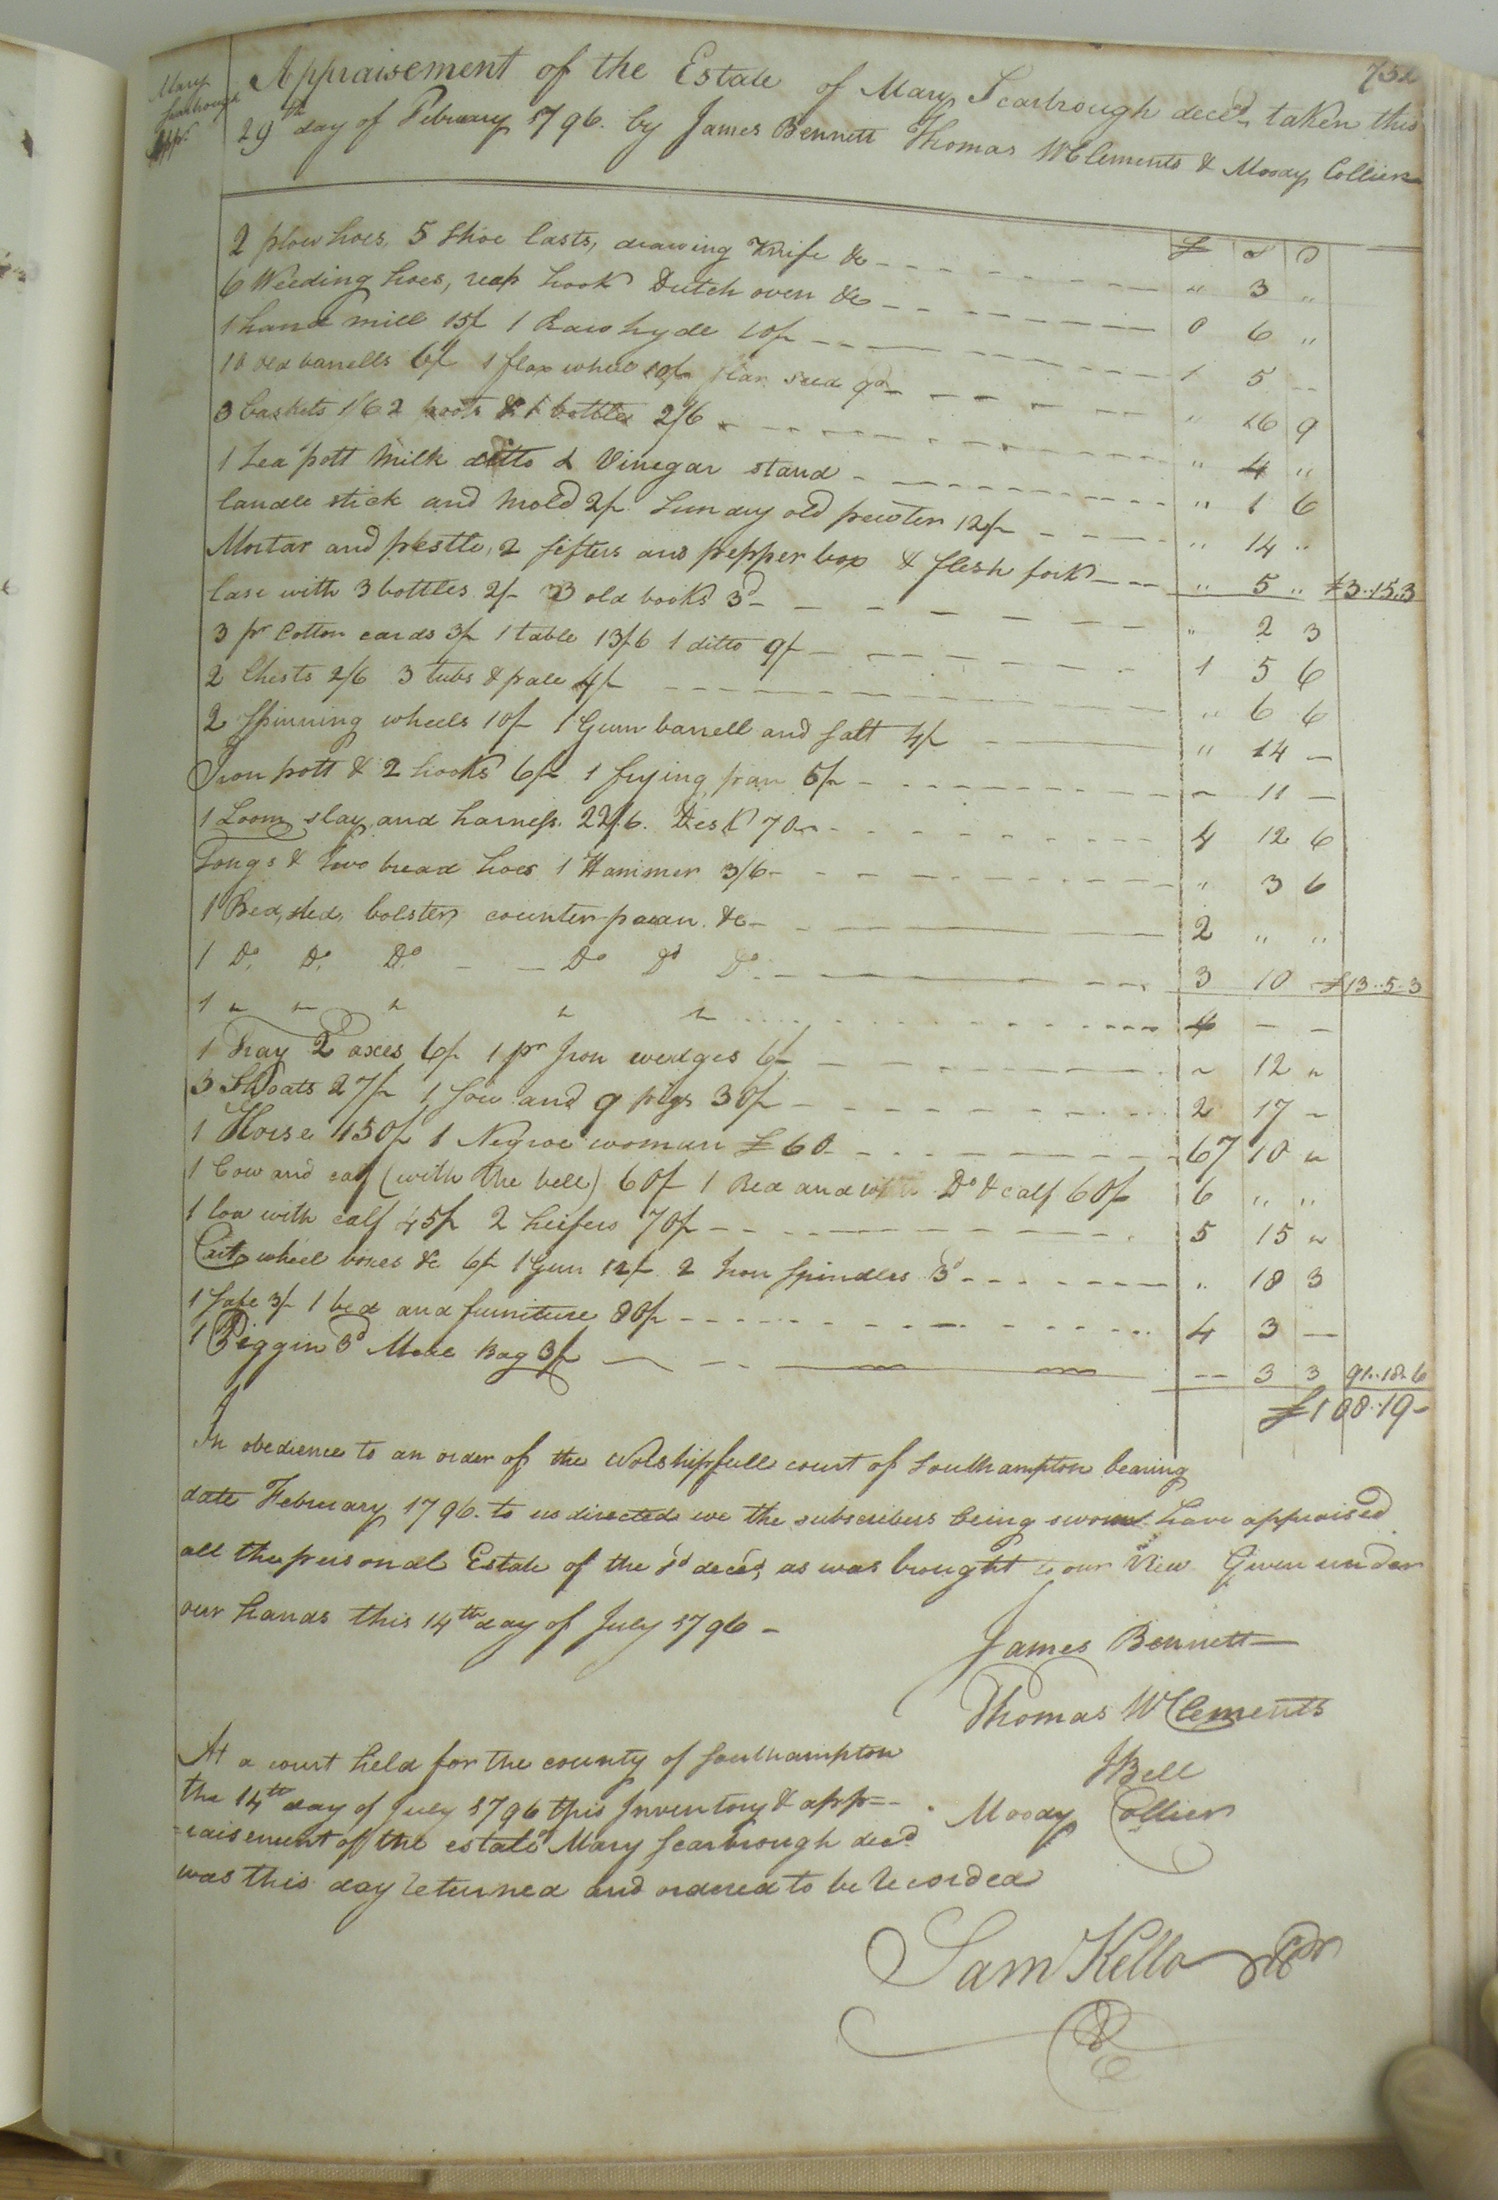 752
Mary
Scarbrough
App.
Appraisement of the Estate of Mary Scarbrough decd. taken this
29th day of February 1796. by James Bennett Thomas W Clements & Moody Collier
£ S D
2 plow hoes, 5 Shoe lasts, drawing Knife &c " 3 "
6 Weeding hoes, reap hook Dutch oven &c 0 6 "
1 hand mill 15/ 1 Raw hyde 10/ 1 5 --
10 old barrells 6/ 1 flax wheel 10/ 1 seed 9d " 16 9
3 baskets 1/6 2 & 1 bottle 2/6 " 4 "
1 Tea pott milk ditto & Vinegar stand " 1 6
Candle stick and mold 2/ Sundry old pewter 12/ " 14 "
Mortar and pestle, 2 sifters and pepper box & flesh fork " 5 " £3..15..3
Case with 3 bottles 2/- 3 old books 3d " 2 3
3 pr Cotton cards 3/ 1 table 13/6 1 ditto 9/ 1 5 6
2 Chests 2/6 3 tubs & pale 4/ " 6 6
2 Spinning wheels 10/ 1 Gum barrell and salt 4/ " 14 --
Iron pott & 2 hooks 6/ 1 frying pan 5/ " 11 --
1 Loom, slay, and harness. 22/6. Desk 70 4 12 6
Tongs & two broad hoes 1 Hammer 3/6 " 3 6
1 Bed, sted, bolster, counterpaan. &c 2 " "
1 Do. Do. Do. Do Do Do. 3 10 - £13..5..3
1 " " " " " 4 -- --
1 Tray 2 axes 6/ 1 pr Iron wedges 6/ " 12 "
3 Shoats 27/ 1 Sow and 9 pigs 30/ 2 17 "
1 Horse 150/ 1 Negroe woman £60 67 10 "
1 Cow and calf (with the bell) 60/ 1 Red and Do & calf 60/ 6 " "
1 Cow with calf 45/ 2 heifers 70/ 5 15 "
Cart wheel boxes &c 6/ 1 Gun 12/ 2 Iron Spindles 3d " 18 3
1 Safe 3/ 1 bed and furniture 80/ 4 3 --
1 Piggin 3d Meal Bag 3/ -- 3 3 91..18..6
£108..19-
In obedience to an order of the Worshipfull court of Southampton bearing
date February 1796. to us directed we the subscribers being sworn have appraised
all the personal Estate of the sd decd, as was brought to our View Given under
our hands this 14th day of July 1796 -
James Bennett
Thomas W Clements
JBell
Moody Collier
At a court held for the county of Southampton
the 14th day of July 1796 this Inventory & app=
=raisement of the estate of Mary Scarbrough decd
was this day returned and ordered to be recorded
Sam Kello